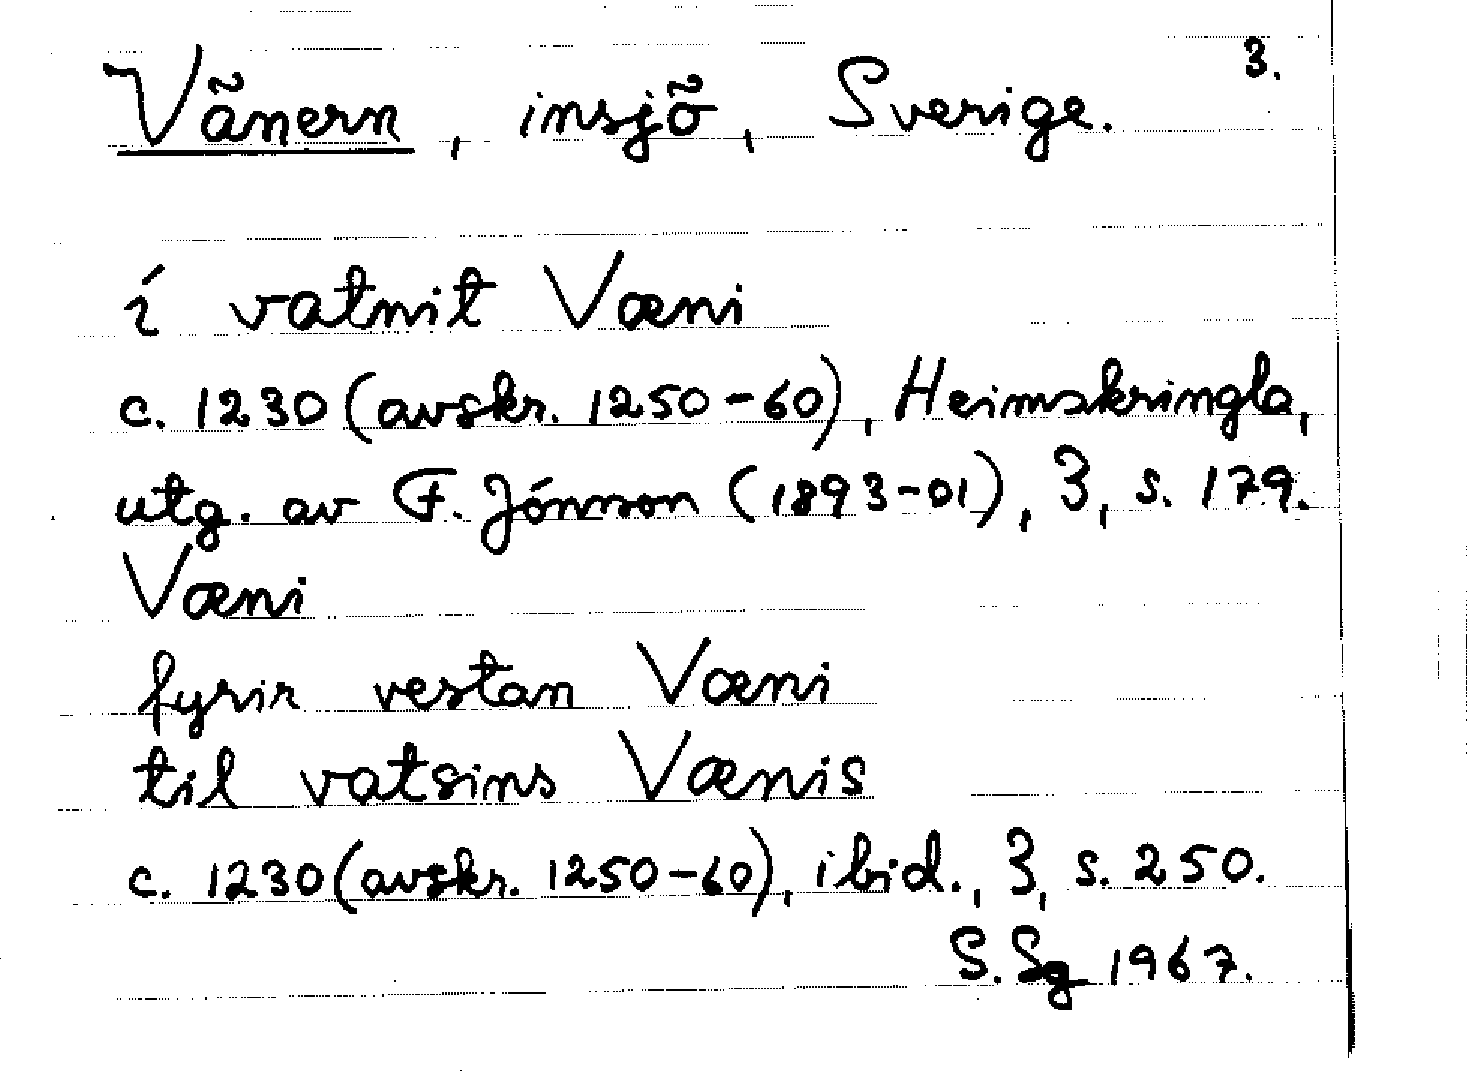 3.
Vänern, insjö, Sverige.
í vatnit Væni
c. 1230 (avskr. 1250-60), Heimskringla,
utg. av F. Jónsson (1893-01), 3, s. 179.
Væni
fyrir vestan Væni
til vatsins Vænis
c. 1230 (avskr. 1250-60), ibid., 3, s. 250.
S. Sg 1967.